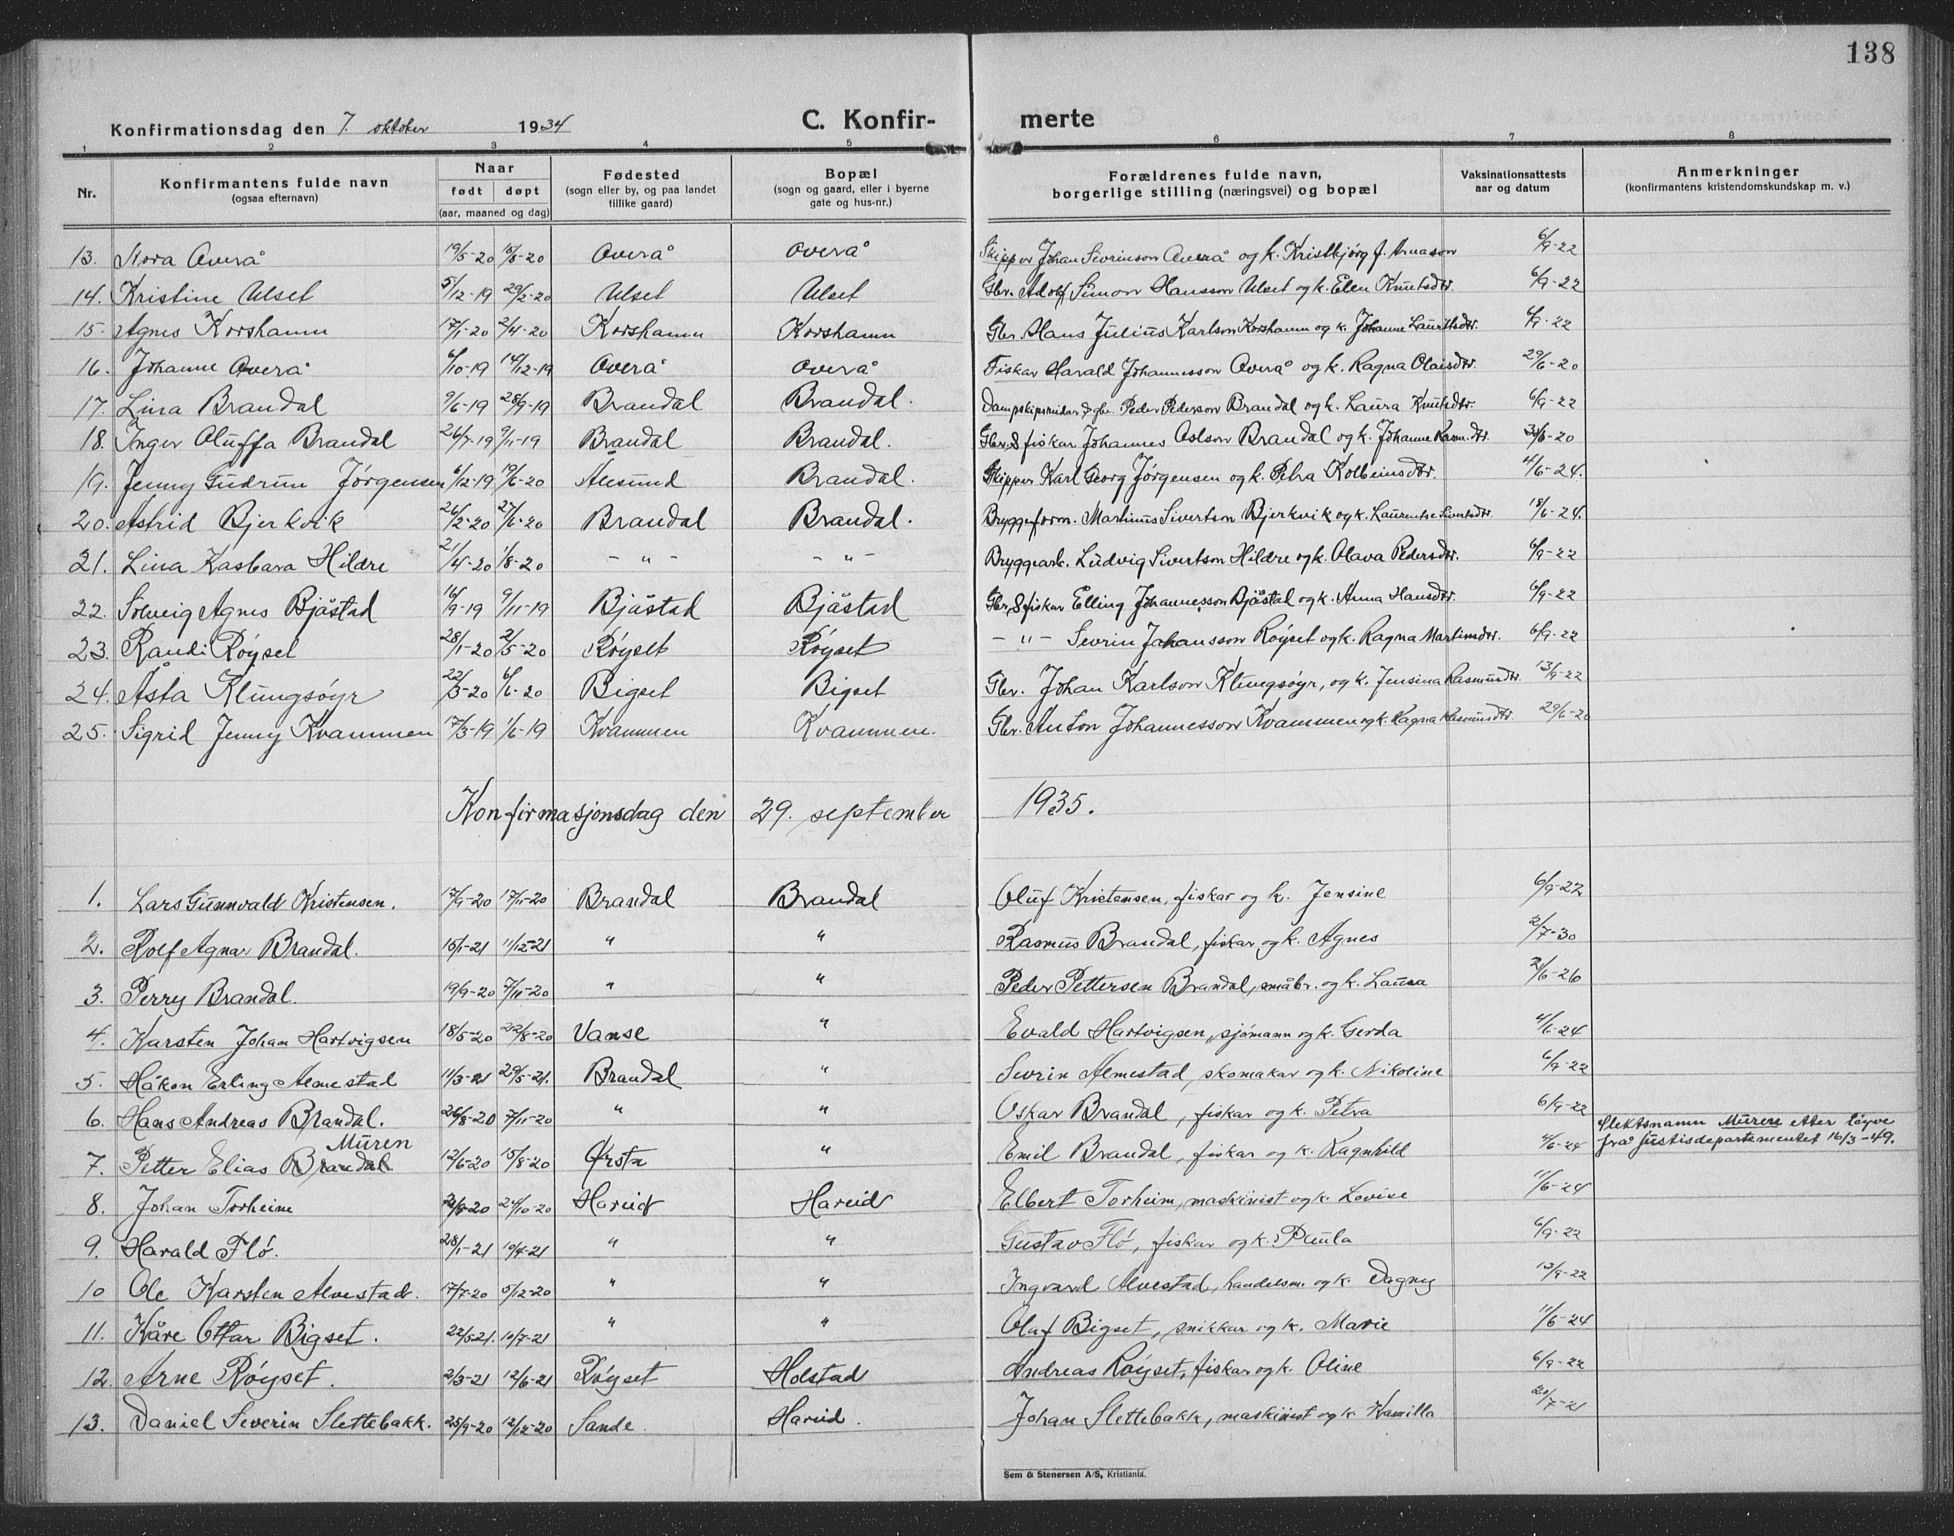 138
Konfirmationsdag den 7. oktober 1934 C. Konfir- merte
1 2 3 4 5 6 7 8
Nr. Konfirmantens fulde navn (ogsaa efternavn) Naar født døpt (aar, maaned og dag) Fødested (sogn eller by, og paa landet tillike gaard) Bopæl (sogn og gaard, eller i byerne gate og hus-nr.) Forældrenes fulde navn, borgerlige stilling (næringsvei) og bopæl Vaksinationsattests aar og datum Anmerkninger (konfirmantens kristendomskundskap m. v.)
13. Nora Overå 19/5-20 15/8-20 Overå Overå Skipper Johan Sivrinson Overå og k. Kristbjørg f. Arnason 6/9-22
14. Kristine Ulset 5/12-19 29/2-20 Ulset Ulset Gbr. Adolf Simon Hansson Ulset og k. Elen Knutsdtr. 6/9-22
15. Agnes Korshamn 17/1-20 2/4-20 Korshamn Korshamn Gbr. Hans Julius Karlson Korshamn og k. Johanne Lauritsdtr. 6/9-22
16. Johanne Overå 6/10-19 14/12-19 Overå Overå Fiskar Harald Johannesson Overå og k. Ragna Olaisdtr. 29/6-20
17. Lina Brandal 9/6-19 28/9-19 Brandal Brandal. Dampskipsreidar & gbr. Peder Pederson Brandal og k. Laura Knutsdtr. 6/9-22
18. Inger Oluffa Brandal 26/7-19 9/11-19 Brandal Brandal. Gbr. & fiskar Johannes Aslson Brandal og k. Johanne Rasm.dtr. /6-20
19. Jenny Gudrun Jørgensen 6/12-19 19/6-20 Ålesund Brandal. Skipper Karl Georg Jørgensen og k. Petra Kolbeinsdtr. 4/6-24.
20. Astrid Bjerkvik 26/2-20 27/6-20 Brandal Brandal. Bryggeform. Martinus Sivertson Bjerkvik og k. Laurentse Sivertsdtr. 18/6-24.
21. Lina Kasbara Hildre 21/4-20 1/8-20 - " - - " - Bryggearb. Ludvig Sivertson Hildre og k. Olava Pedersdtr. 6/9-22
22. Solveig Agnes Bjåstad 16/9-19 9/11-19 Bjåstad Bjåstad Gbr. & fiskar Elling Johannesson Bjåstad og k. Anna Hansdtr. 6/9-22
23. Randi Röyset 28/1-20 2/5-20 Röyset Röyset - " - Sevrin Johansson Röyset og k. Ragna Martinsdtr. 6/9-22
24. Åsta Klungsöyr 22/3-20 6/6-20 Bigset Bigset Gbr. Johan Karlson Klungsöyr, og k. Jensina Rasmusdtr. 13/9-22
25. Sigrid Jenny Kvammen 17/3-19 1/6-19 Kvammen Kvammen. Gbr. Anton Johannesson Kvammen og k. Ragna Rasmusdtr. 29/6-20
Konfirmasjonsdag den 29. september 1935.
1. Lars Gunnvald Kristensen. 17/9-20 17/11-20 Brandal Brandal Oluf Kristensen, fiskar og k. Jensine 6/9-22
2. Rolf Agnar Brandal. 15/1-21 11/12-21 " " Rasmus Brandal, fiskar og k. Agnes 2/7-30
3. Perry Brandal. 19/9-20 7/11-20 " " Peder Pettersen Brandal, småbr. og k. Laura /6-26
4. Karsten Johan Hartvigsen 18/5-20 22/8-20 Vanse " Evald Hartvigsen, sjömann og k. Gerda 4/6-24
5. Håkon Erling Almestad 11/3-21 29/5-21. Brandal " Sevrin Almestad, skomakar og k. Nikoline 6/9-22
6. Hans Andreas Brandal. 26/8-20 7/11-20 " " Oskar Brandal, fiskar og k. Petra 6/9-22
Muren Slektsnamn Muren etter løyve
7. Petter Elias Brandal. 12/6-20 15/8-20 Ørsta " Emil Brandal, fiskar og k. Ragnhild 4/6-24 frå justisdepartementet 16/3-49.
8. Johan Torheim /9-20 24/10-20 Hareid Hareid Elbert Torheim, maskinist og k. Lovise 11/6-24
9. Harald Flö. 28/1-21 10/4-21 " " Gustav Flö, fiskar og k. Paula 6/9-22
10 Ole Karsten Alvestad. 17/7-20 5/12-20 " " Ingvard Alvestad, handelsm. og k. Dagny 13/9-22
11. Kåre Ottar Bigset. 22/5-21. 10/7-21 " " Olaf Bigset, snikkar og k. Marie 11/6-24
12. Arne Röyset. 2/3-21 12/6-21 Röyset Holstad Andreas Röyset, fiskar og k. Oline 6/9-22
13. Daniel Severin Slettebakk. 25/9-20 12/12-20 Sande. Hareid. Johan Slettebakk, maskinist og k. Kamilla 20/7-21
Sem & Stenersen A/S, Kristiania.